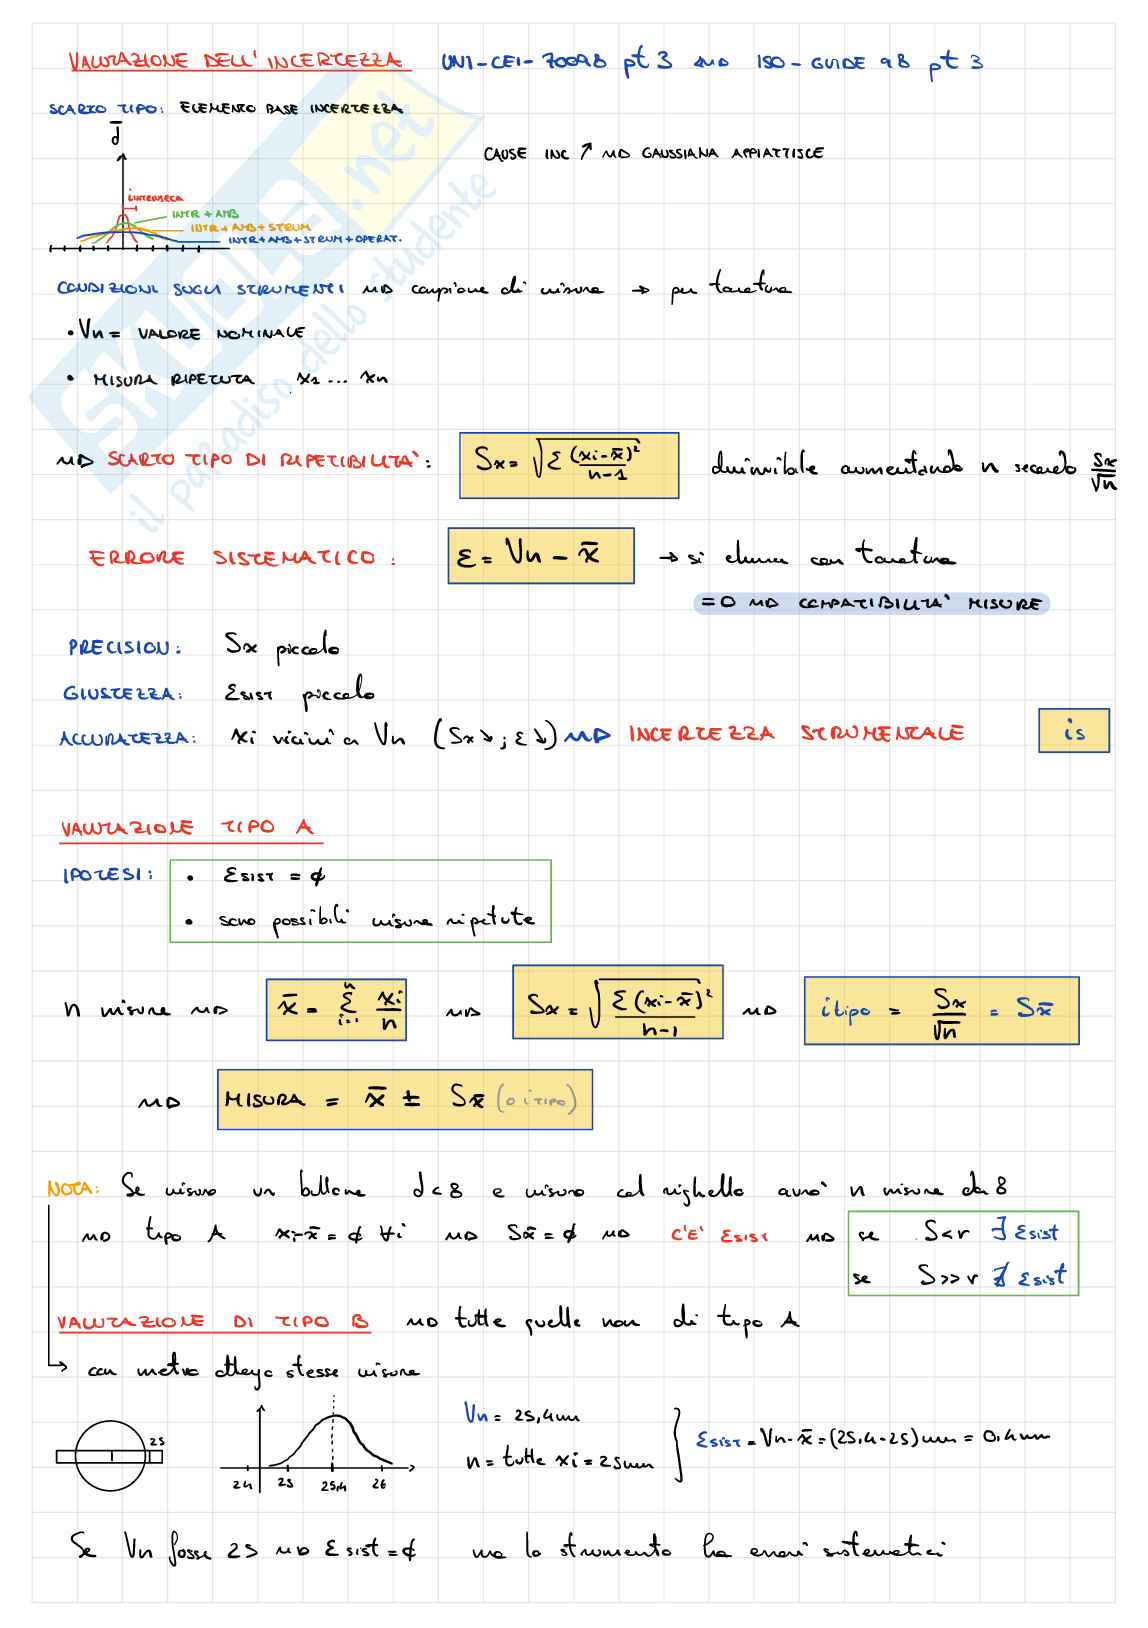 VALUTAZIONE DELL' INCERTEZZA UNI-CEI-70098 pt 3 → ISO-GUIDE 98 pt 3
SCARTO TIPO: ELEMENTO BASE INCERTEZZA
d̄
CAUSE INC ↗ → GAUSSIANA APPIATTISCE
iINTRINSECA
INTR + AMB
INTR + AMB + STRUM
INTR + AMB + STRUM + OPERAT.
CONDIZIONI SUGLI STRUMENTI → campione di misura → per taratura
• Vn = VALORE NOMINALE
• MISURA RIPETUTA x1 ... xn
→ SCARTO TIPO DI RIPETIBILITA': Sx = √Σ (xi-x̄)²/n-1 diminuibile aumentando n secondo Sx/√n
ERRORE SISTEMATICO: ε = Vn - x̄ → si elimina con taratura
= 0 → COMPATIBILITA' MISURE
PRECISION: Sx piccolo
GIUSTEZZA: εSIST piccolo
ACCURATEZZA: xi vicini a Vn (Sx↘; ε↘) → INCERTEZZA STRUMENTALE is
VALUTAZIONE TIPO A
IPOTESI: • εSIST = ϕ
• sono possibili misure ripetute
n misure → x̄ = Σ i=1 n xi/n → Sx = √Σ(xi-x̄)²/n-1 → itipo = Sx/√n = Sx̄
→ MISURA = x̄ ± Sx̄ (o iTIPO)
NOTA: Se misuro un bullone d<8 e misuro col righello avrò n misure da 8
→ tipo A xi-x̄ = ϕ ∀i → Sx̄ = ϕ → C'E' εSIST → se S<r ∃ εsist
se S>>r ∄ εsist
VALUTAZIONE DI TIPO B → tutte quelle non di tipo A
→ con metro ottengo stesse misure
25
24 25 25,4 26
Vn = 25,4mm
n = tutte xi = 25mm
εSIST = Vn - x̄ = (25,4-25) mm = 0,4mm
Se Vn fosse 25 → εsist = ϕ ma lo strumento ha errori sistematici
SKUOLA.net
il paradiso dello studente